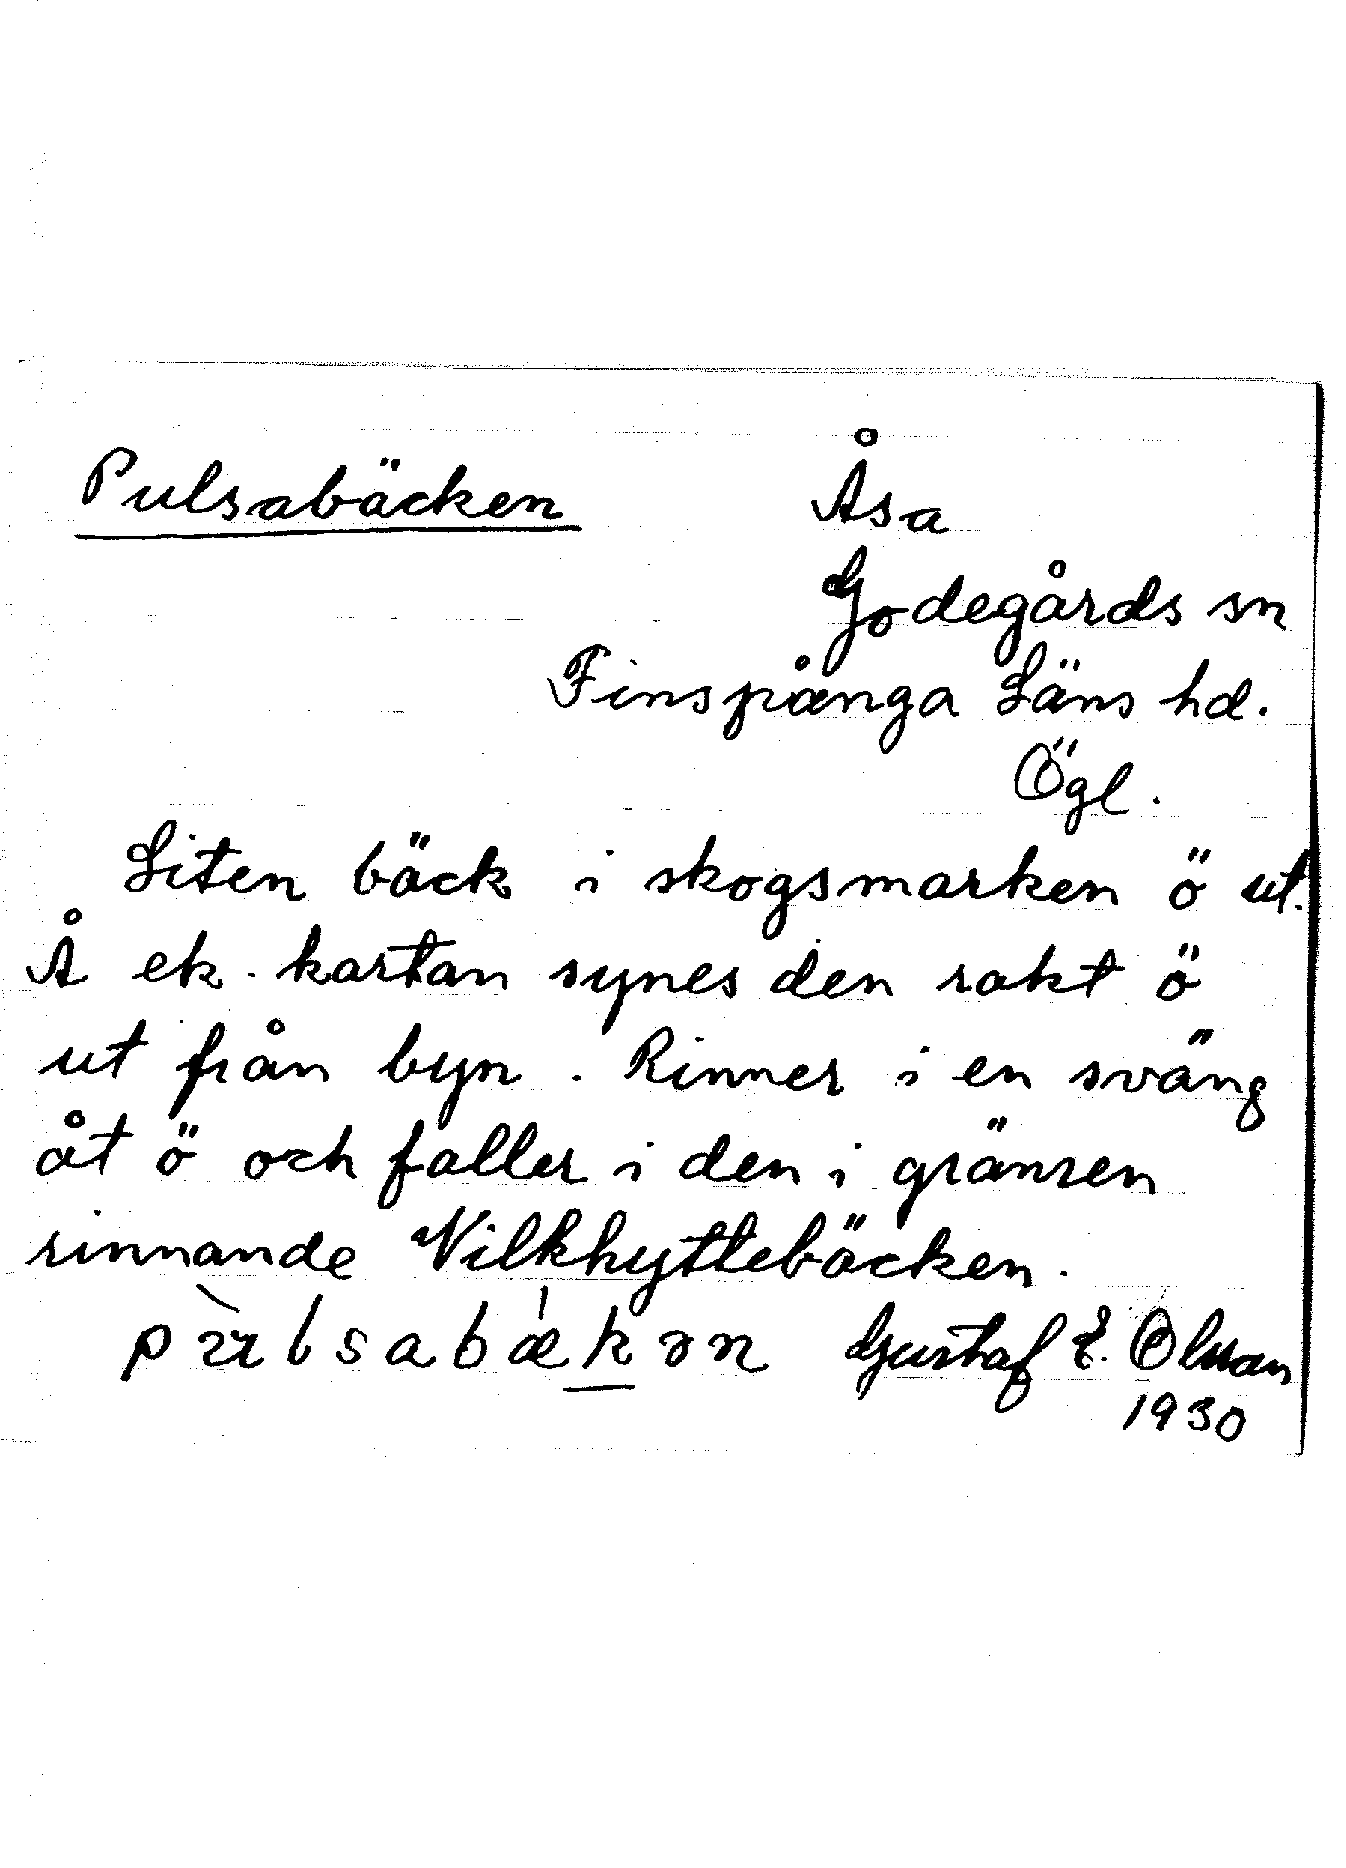 Pulsabäcken Åsa
Godegårds sn
Finspånga Läns hd.
Ögl.
Liten bäck i skogsmarken ö ut.
Å ek. kartan synes den rakt ö
ut från byn. Rinner i en sväng
åt ö och faller i den i gränsen
rinnande Vilkhyttebäcken.
Gustaf E. Olsson
1930